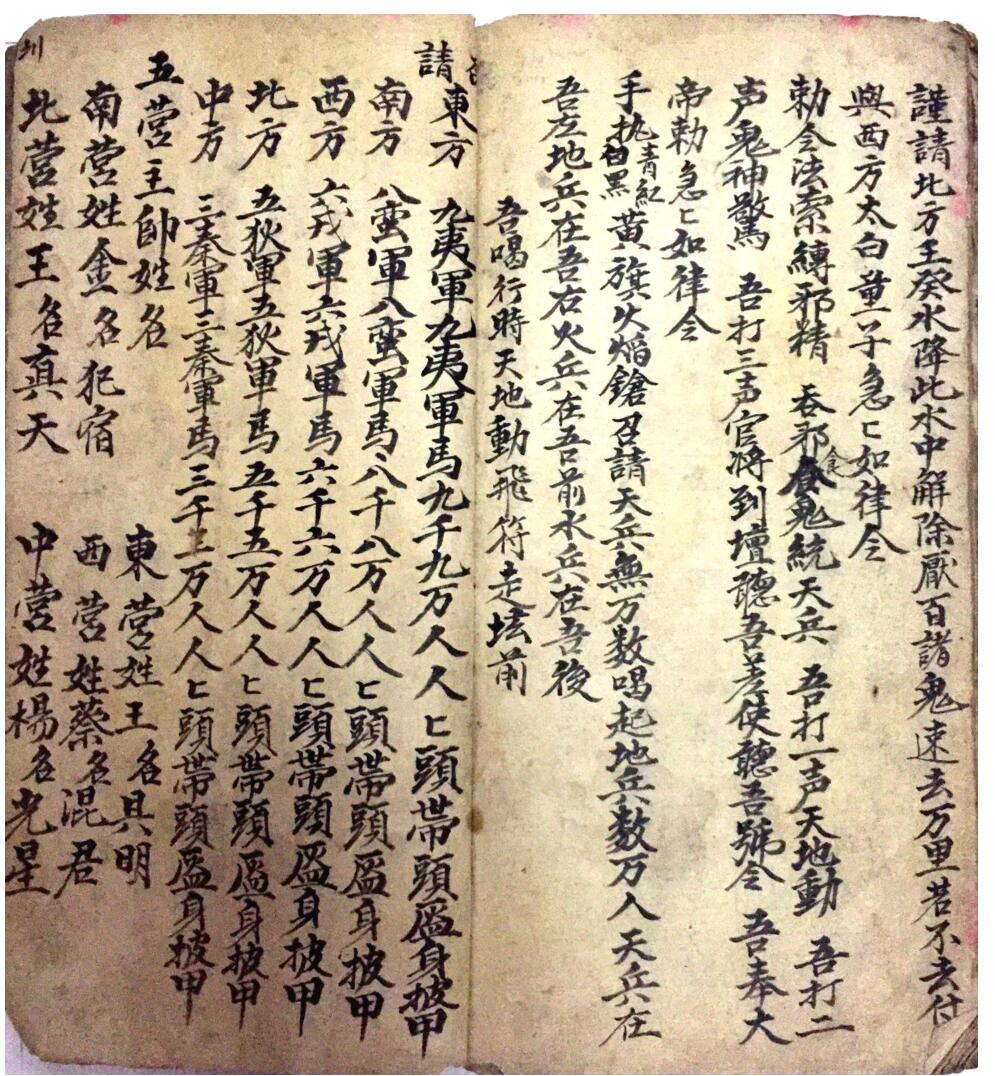 謹請北方壬癸水降此水中解除厭百諸鬼速去万里若不去付
與西方太白童子急匕如律令
勅令法索縛邪精 吞邪食鬼統天兵 吾打一声天地動 吾打二
食
声鬼神驚 吾打三声官将到壇聽吾差使聽吾號令 吾奉大
帝勅急匕如律令
手执青紅白黑黃旗火焰鎗召請天兵無万数喝起地兵数万人天兵在
吾左地兵在吾右火兵在吾前水兵在吾後
吾喝行時天地動飛符走坛前
請東方 九夷軍九夷軍馬九千九万人人匕頭帶頭盔身披甲
南方 八蛮軍八蛮軍馬八千八万人人匕頭帶頭盔身披甲
西方 六戎軍六戎軍馬六千六万人人匕頭帶頭盔身披甲
北方 五狄軍五狄軍馬五千五万人人匕頭帶頭盔身披甲
中方 三秦軍三秦軍馬三千三万人人匕頭帶頭盔身披甲
五營主帥姓名
東營姓王名具明
南營姓金名犯宿
西營姓蔡名混君
北營姓王名真天
中營姓楊名光星